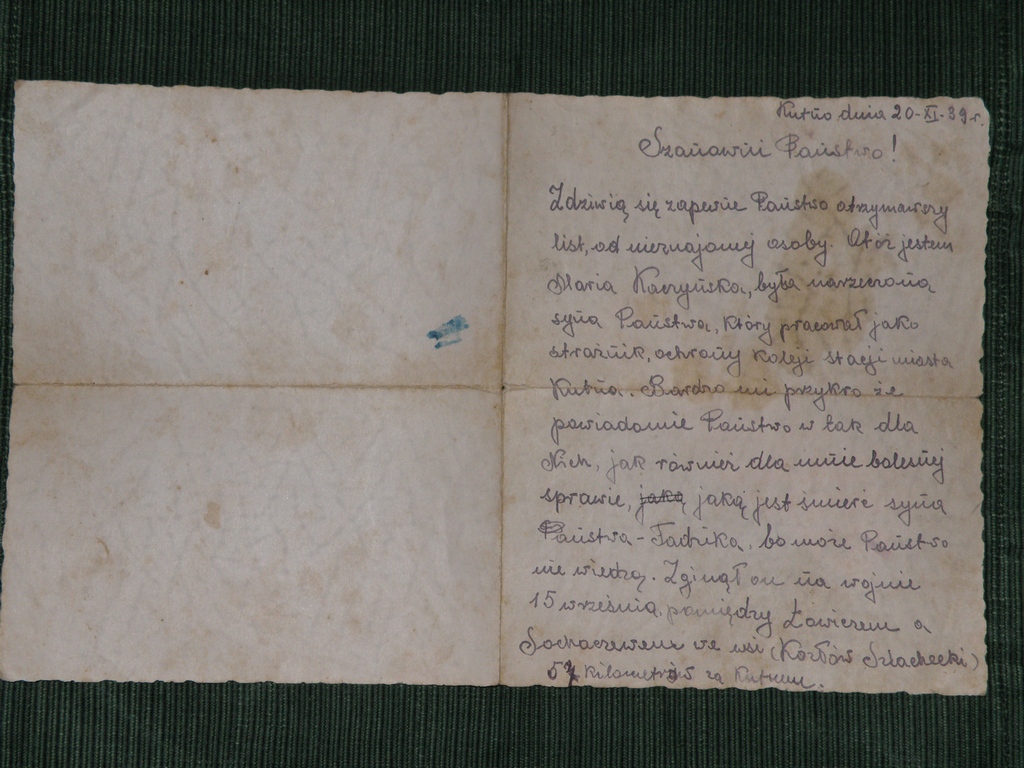 Kutno dnia 20-XI-39 r.
Szanowni Państwo!
Zdziwią się zapewne Państwo otrzymawszy
list, od nieznajomej osoby. Otóż jestem
Maria Kaczyńska, była narzeczona
syna Państwa, który pracował jako
strażnik, ochrony koleji stacji miasta
Kutna. Bardzo mi przykro że
powiadomie Państwo w tak dla
Nich, jak również dla mnie bolesnej
sprawie, jaką jaką jest śmierć syna
Państwa - Tadzika, bo może Państwo
nie wiedzą. Zginął on na wojnie
15 września, pomiędzy Łowiczem a
Sochaczewem we wsi (Kozłów Szlachecki)
57 kilometrów za Kutnem.